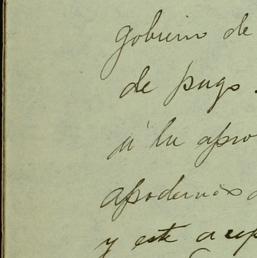 gobierno de
de pago
á la apro
apoderados
y este acep